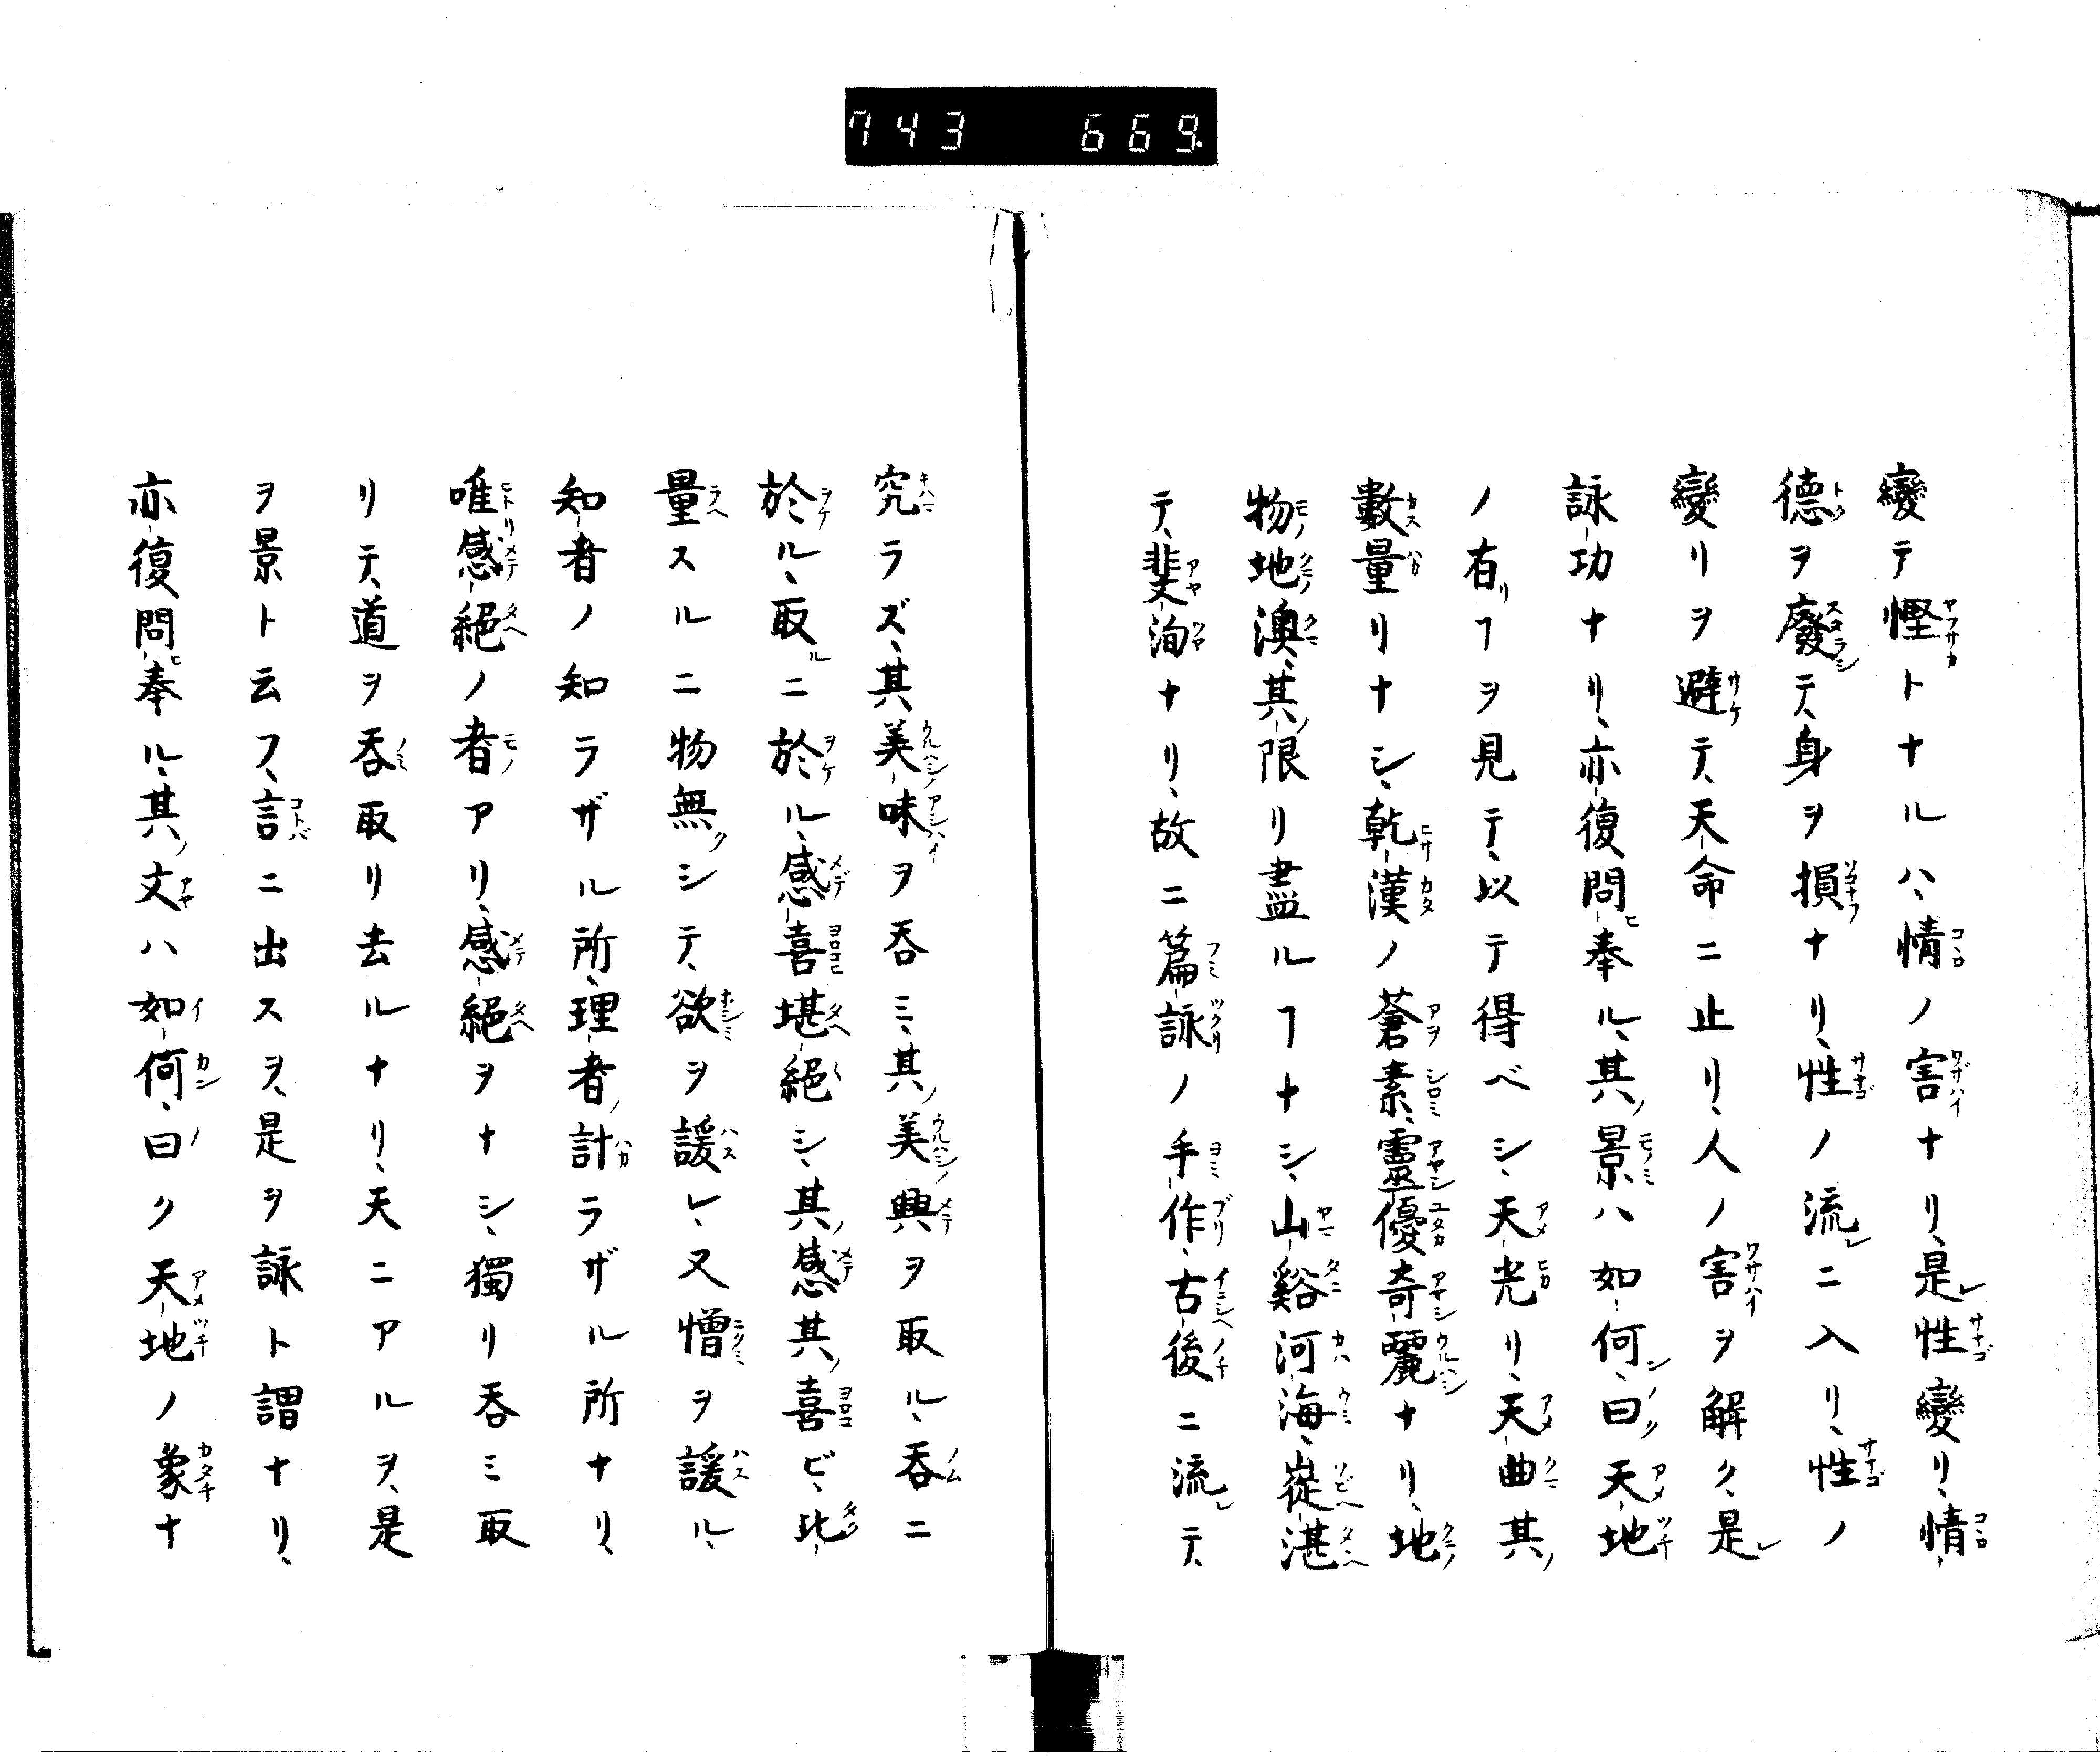 743 669
變テ慳トナルハ、情ノ害ナリ、是性變リ、情
德ヲ廢テ、身ヲ損ナリ、性ノ流ニ入リ、性ノ
變リヲ避テ、天命ニ止リ、人ノ害ヲ解ク、是
詠功ナリ、亦復問奉ル、其景ハ如何、曰天地
ノ有ヿヲ見テ、以テ得ベシ、天光リ、天曲其
數量リナシ、乾漢ノ蒼素、靈優奇麗ナリ、地
物地澳、其限リ盡ルヿナシ、山谿河海、嵸湛
テ、斐洵ナリ、故ニ篇詠ノ手作、古後ニ流テ
究ラズ、其美味ヲ呑ミ、其美興ヲ取ル、呑ニ
於ル、取ニ於ル、感喜堪絕シ、其感其喜ビ、比
量スルニ物無シテ、欲ヲ諼レ、又憎ヲ諼ル、
知者ノ知ラザル所、理者計ラザル所ナリ、
唯感絕ノ者アリ、感絕ヲナシ、獨リ呑ミ取
リテ、道ヲ呑取リ去ルナリ、天ニアルヲ、是
ヲ景ト云フ、言ニ出スヲ、是ヲ詠ト謂ナリ、
亦復問奉ル、其文ハ如何、曰ク天地ノ象ナ